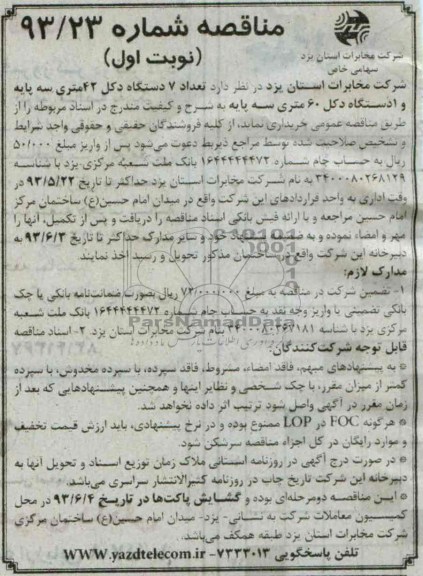 مناقصه شماره ۹۳/۲۳
(نوبت اول)
شرکت مخابرات استان یزد
سهامی خاص
شرکت مخابرات استان یزد در نظر دارد تعداد ۷ دستگاه دکل ۴۲متری سه پایه
و ۱دستگاه دکل ۶۰ متری سه پایه به شرح و کیفیت مندرج در اسناد مربوطه را از
طریق مناقصه عمومی خریداری نماید، از کلیه فروشندگان حقیقی و حقوقی واجد شرایط
و تشخیص صلاحیت شده توسط مراجع ذیربط دعوت می‌شود پس از واریز مبلغ ۵۰/۰۰۰
ریال به حساب جام شماره ۱۶۴۴۴۴۴۴۷۲ بانک ملت شعبه مرکزی یزد با شناسه
۳۴۰۰۰۸۰۲۶۸۱۲۹ به نام شرکت مخابرات استان یزد حداکثر تا تاریخ ۹۳/۵/۲۲ در
وقت اداری به واحد قراردادهای این شرکت واقع در میدان امام حسین(ع) ساختمان مرکز
امام حسین مراجعه و با ارائه فیش بانکی اسناد مناقصه را دریافت و پس از تکمیل، آنها را
مهر و امضاء نموده و به ضمیمه پیشنهاد خود و سایر مدارک حداکثر تا تاریخ ۹۳/۶/۳ به
دبیرخانه این شرکت واقع در ساختمان مذکور تحویل و رسید اخذ نمایند.
مدارک لازم:
۱- تضمین شرکت در مناقصه به مبلغ ۷۳/۰۰۰/۰۰۰ ریال بصورت ضمانت‌نامه بانکی یا چک
بانکی تضمینی یا واریز وجه نقد به حساب جام شماره ۱۶۴۴۴۴۴۴۷۲ بانک ملت شعبه
مرکزی یزد با شناسه بنام شرکت مخابرات استان یزد. ۲- اسناد مناقصه
قابل توجه شرکت‌کنندگان:
* به پیشنهادهای مبهم، فاقد امضاء، مشروط، فاقد سپرده، با سپرده مخدوش، با سپرده
کمتر از میزان مقرر، با چک شخصی و نظایر اینها و همچنین پیشنهادهایی که بعد از
زمان مقرر در آگهی واصل شود ترتیب اثر داده نخواهد شد.
* هرگونه FOC در LOP ممنوع بوده و در نرخ پیشنهادی، باید ارزش قیمت تخفیف
و موارد رایگان در کل اجزاء مناقصه سرشکن شود.
* در صورت درج آگهی در روزنامه استانی ملاک زمان توزیع اسناد و تحویل آنها به
دبیرخانه این شرکت تاریخ چاپ در روزنامه کثیرالانتشار سراسری می‌باشد.
* این مناقصه دومرحله‌ای بوده و گشایش پاکت‌ها در تاریخ ۹۳/۶/۴ در محل
کمیسیون معاملات شرکت به نشانی- یزد- میدان امام حسین(ع) ساختمان مرکزی
شرکت مخابرات استان یزد طبقه همکف می‌باشد.
تلفن پاسخگویی ۷۲۳۳۰۱۳- www.yazdtelecom.ir
ParsNamadData